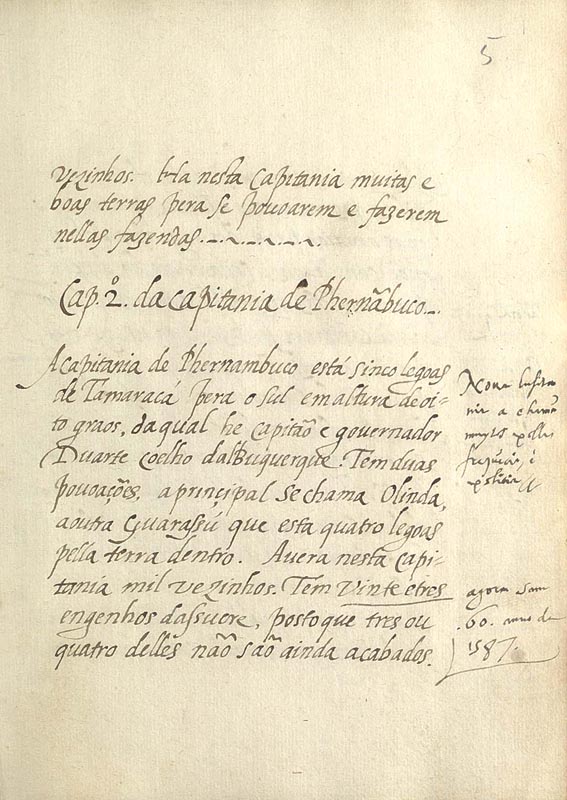 5
vezinhos. ha nesta Capitania muitas e
boas terras pera se povoarem e fazerem
nellas fazendas.
Cap.º 2. da capitania de Phernãbuco.
A capitania de Phernambuco está sinco legoas
de Tamaracá pera o sul em altura de oi-
to graos, da qual he capitaõ e governador
Duarte Coelho dalBuquerque. Tem duas
povoações, a principal se chama Olinda,
a outra Guarassú que esta quatro legoas
pella terra dentro. Avera nesta capi-
tania mil vezinhos. Tem vinte e tres
engenhos dassucre, posto que tres ou
quatro delles naõ saõ ainda acabados.
Nova lusita
nia a chamaõ
muytos
agora sam
.60. anno de
1587.